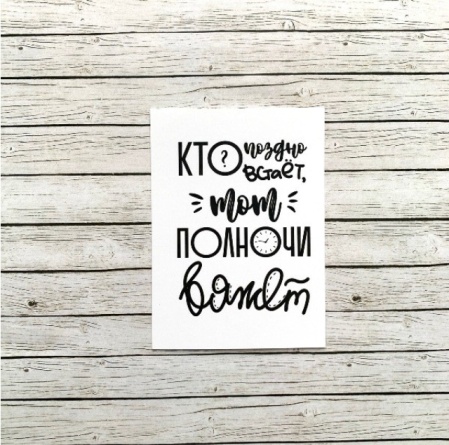 КТО? поздно
встаёт,
тот
ПОЛНОЧИ
вяжет